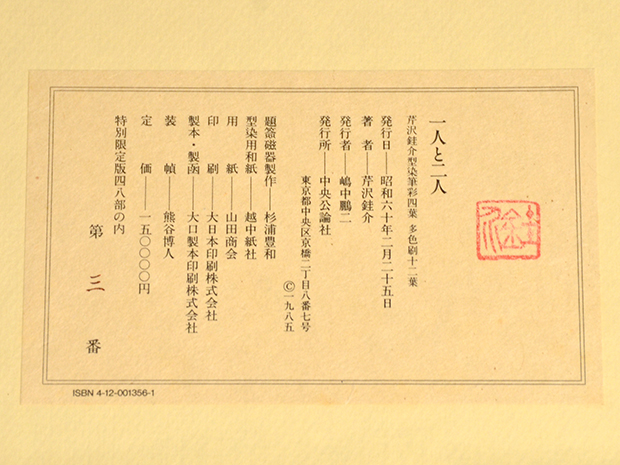 一人と二人
芹沢銈介型染筆彩四葉 多色刷十二葉
発行日──昭和六十年二月二十五日
著者──芹沢銈介
発行者──嶋中鵬二
発行所──中央公論社
東京都中央区京橋二丁目八番七号
©一九八五
題簽磁器製作──杉浦豊和
型染用和紙──越中紙社
用紙──山田商会
印刷──大日本印刷株式会社
製本・製函──大口製本印刷株式会社
装幀──熊谷博人
定価一五〇〇〇〇円
特別限定版四八部の内
第三番
ISBN 4-12-001356-1